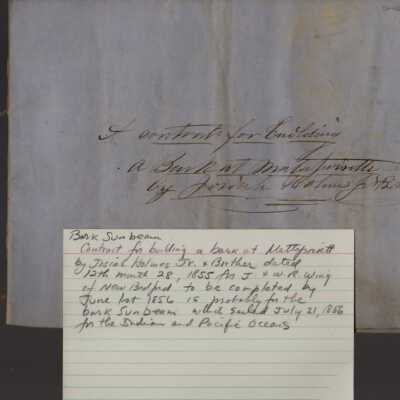 A contract for building
a Bark at Matapoisett
by Josiah Holmes Jr & B
Bark Sunbeam
Contract for building a bark at Mattapoisett
by Josiah Holmes Jr. & Brother dated
12th month 28, 1855 for J. & W. R. Wing
of New Bedford to be completed by
June 1st 1856 is probably for the
bark Sunbeam which sailed July 21, 1856
for the Indian and Pacific Oceans